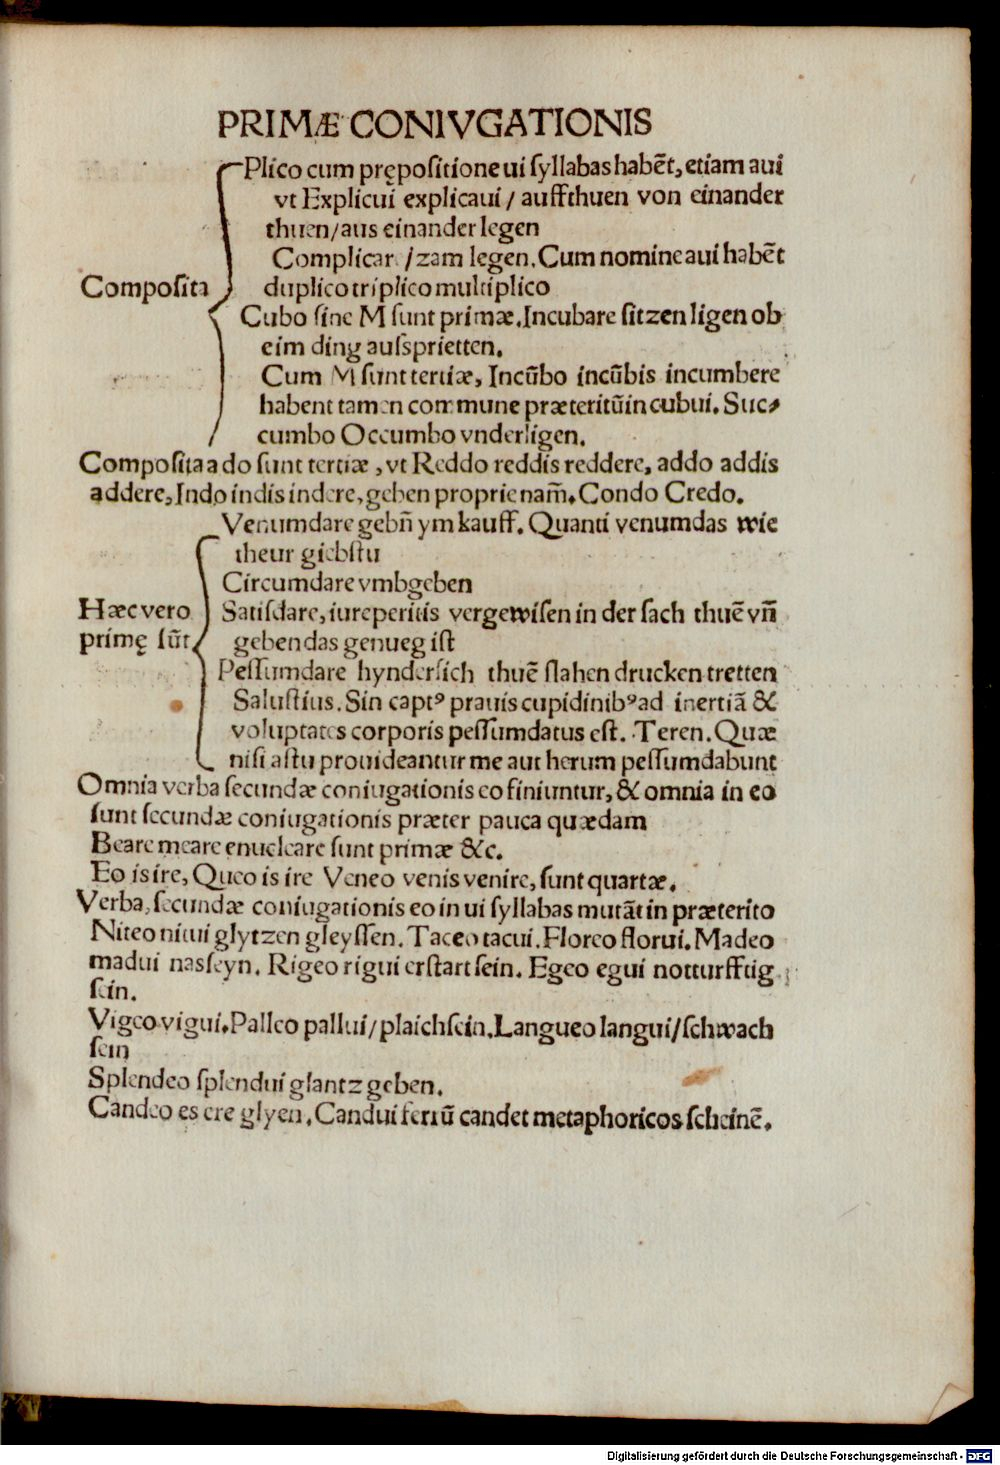 PRIMÆ CONIVGATIONIS
Plico cum prępositione ui syllabas habēt, etiam aui
vt Explicui explicaui / auffthuen von einander
thuen/aus einander legen
Complicare /zam legen. Cum nomine aui habēt
Composita duplico triplico multiplico
Cubo sine M sunt primæ. Incubare sitzen ligen ob
eim ding aussprietten.
Cum M sunt tertiæ, Incūbo incūbis incumbere
habent tamen commune præteritū incubui. Suc⸗
cumbo Occumbo vnderligen.
Composita a do sunt tertiæ , vt Reddo reddis reddere, addo addis
addere, Indo indis indere, geben proprie nam̄. Condo Credo.
Venumdare gebn̄ ym kauff. Quanti venumdas wie
theur giebstu
Circumdare vmbgeben
Hæc vero Satisdare, iureperitis vergewisen in der sach thuē vn̄
primę sūt geben das genueg ist
Pessumdare hyndersich thuē slahen drucken tretten
Salustius. Sin captꝰ prauis cupidinibꝰ ad inertiā &
voluptates corporis pessumdatus est. Teren. Quæ
nisi astu prouideantur me aut herum pessumdabunt
Omnia verba secundæ coniugationis eo finiuntur, & omnia in eo
sunt secundæ coniugationis præter pauca quædam
Beare meare enucleare sunt primæ &c.
Eo is ire, Queo is ire Veneo venis venire, sunt quartæ.
Verba, secundæ coniugationis eo in ui syllabas mutāt in præterito
Niteo nitui glytzen gleyssen. Taceo tacui. Floreo florui. Madeo
madui nasseyn. Rigeo rigui erstart sein. Egeo egui notturfftig
sein.
Vigeo vigui. Palleo pallui/plaichsein. Langueo langui/schwach
sein
Splendeo splendui glantz geben.
Candeo es ere glyen. Candui ferrū candet metaphoricos scheinē.
Digitalisierung gefördert durch die Deutsche Forschungsgemeinschaft - DFG